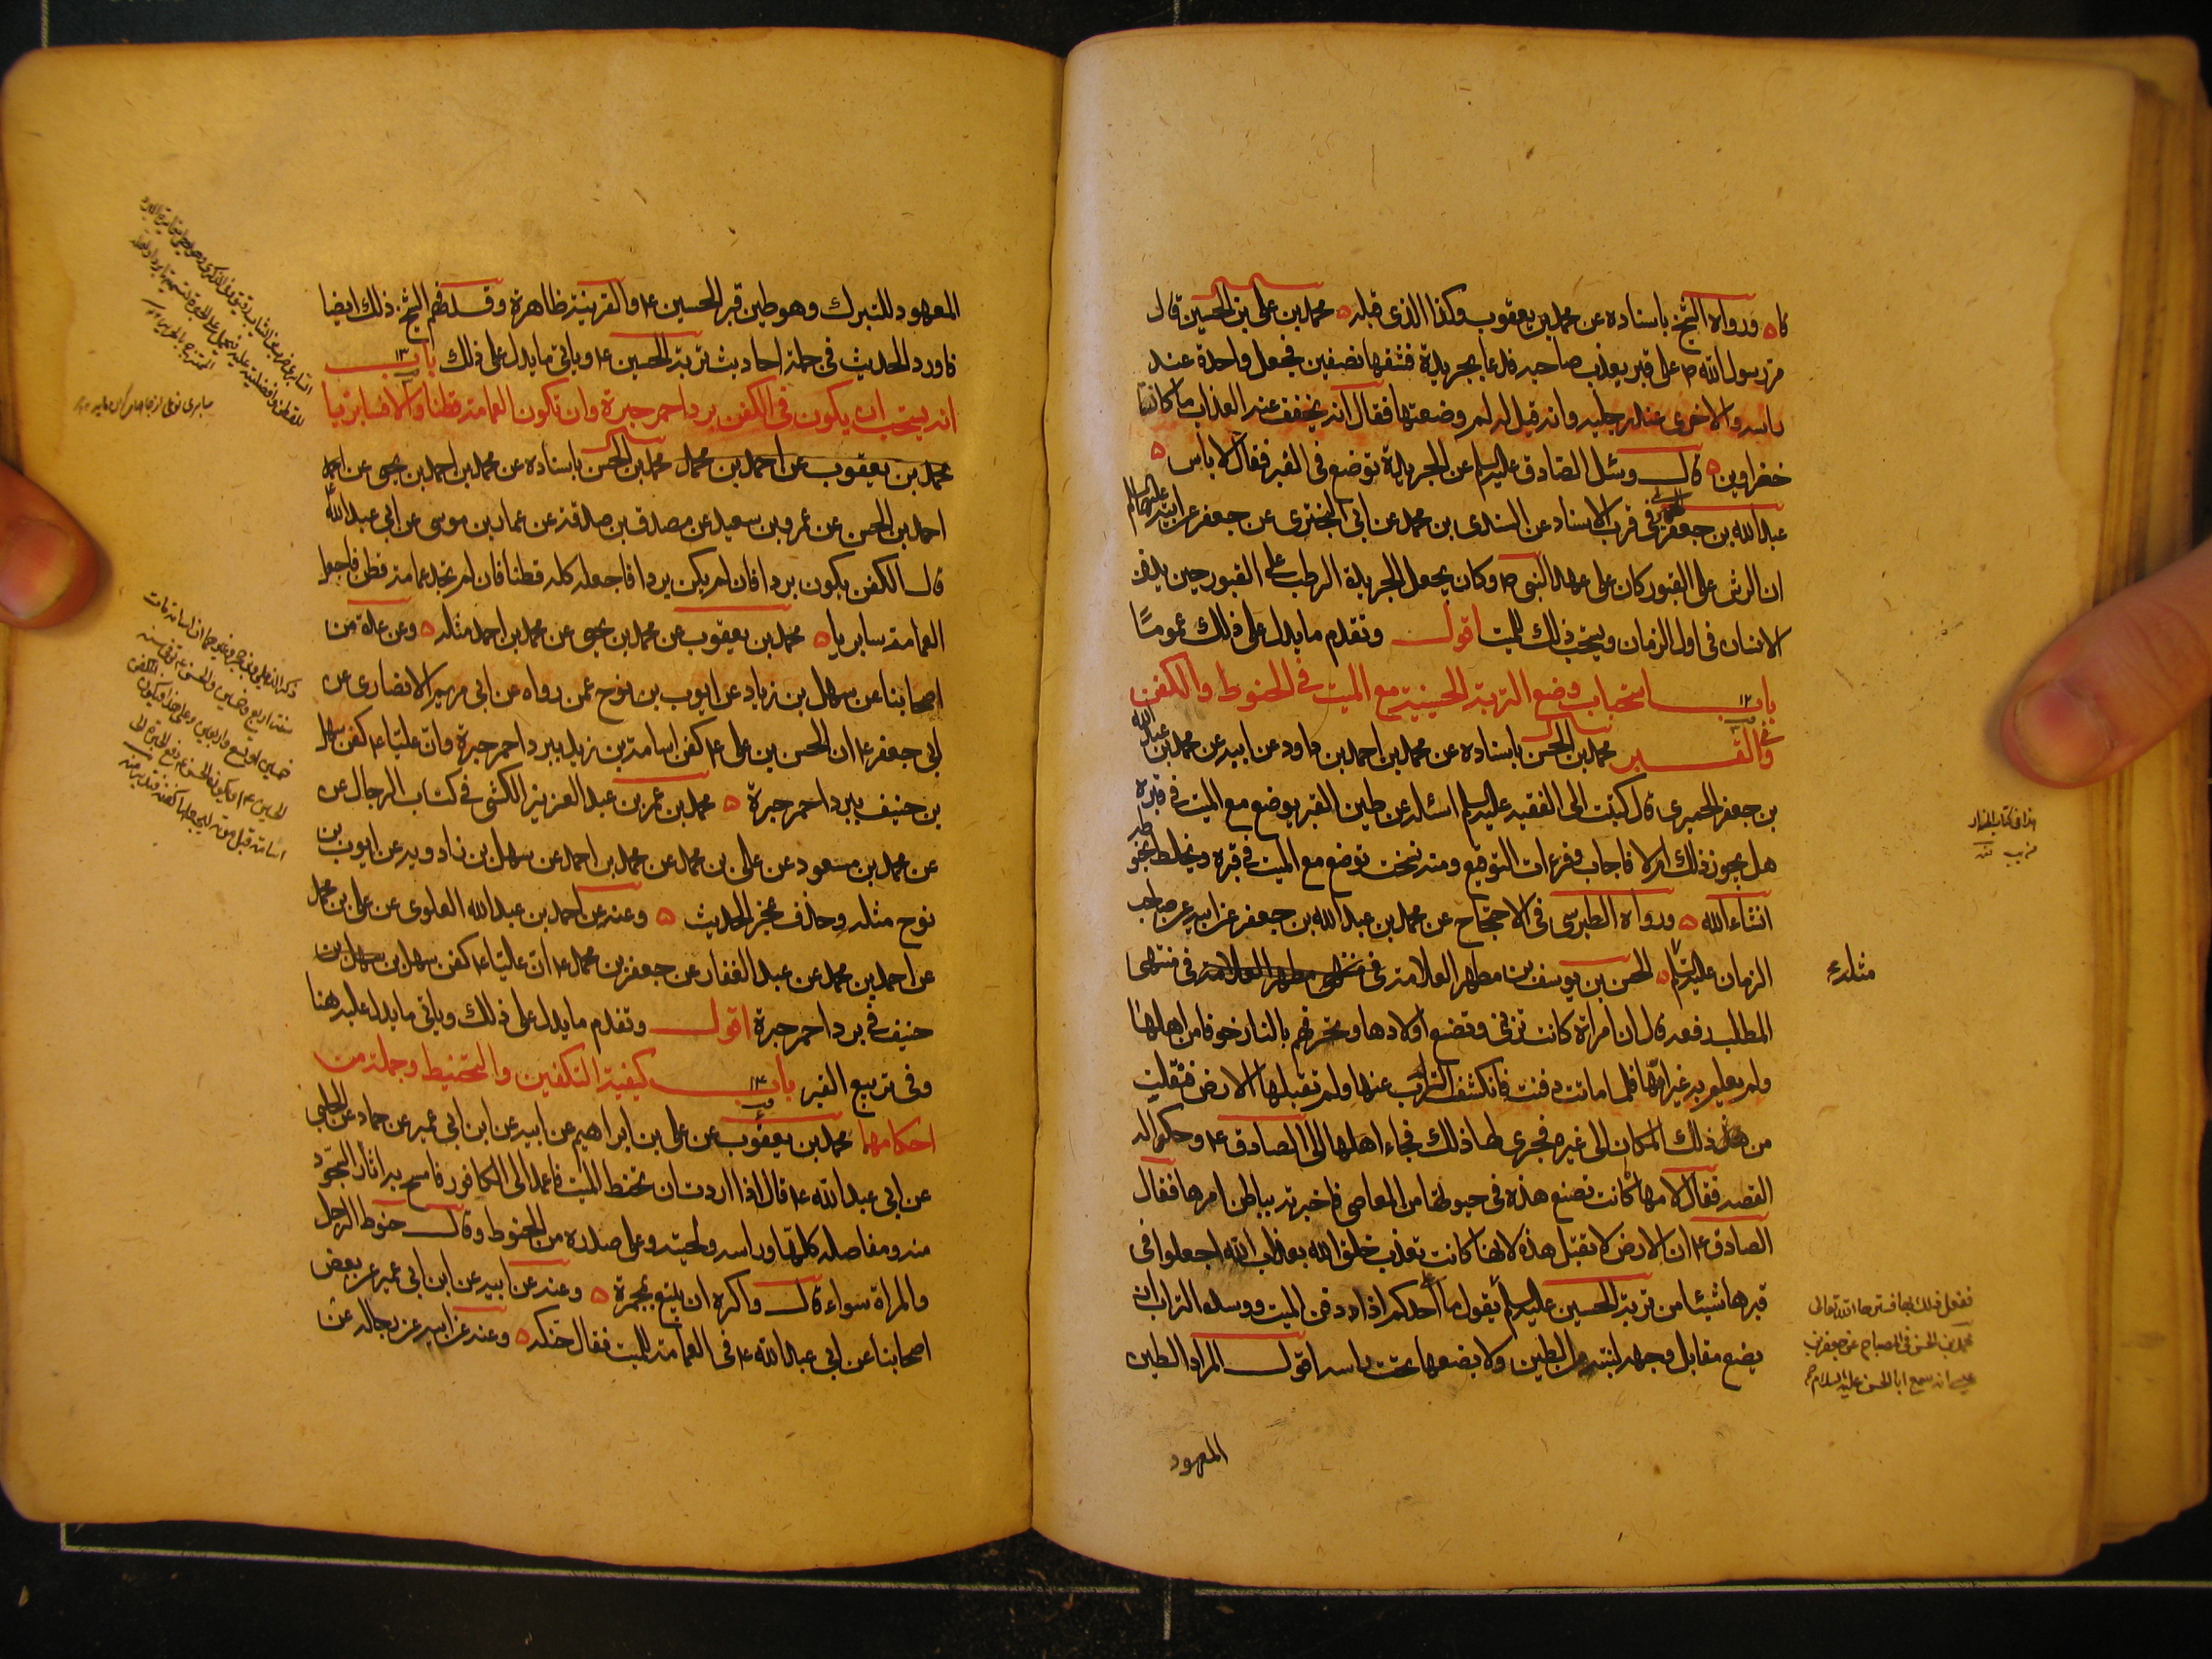 كا ورواه الشيخ باسناده عن محمد بن يعقوب وكذا الذي قبله محمد بن علي بن الحسين قال
مر رسول الله ص على قبر يعذب صاحبه فدعا بجريدة فشقها نصفين فجعل واحدة عند
راسه والاخرى عند رجليه وانه قيل له لم وضعتها فقال انه يخفف عنه العذاب ما كانتا
خضراوين قال وسئل الصادق عليه السلم عن الجريدة توضع في القبر فقال لا باس
عبد الله بن جعفر في قرب الاسناد عن السندي بن محمد عن ابي البختري عن جعفر عن ابيه عليهما السلام
ان الرش على القبور كان على عهد النبي ص وكان يجعل الجريدة الرطب على القبور حين يدفن
الانسان في اول الزمان ويستحب ذلك للميت اقول وتقدم ما يدل على ذلك عموما
باب ١٢ استحباب وضع التربة الحسينية مع الميت في الحنوط والكفن
وفي القبر محمد بن الحسن باسناده عن محمد بن احمد بن داود عن ابيه عن محمد بن عبد الله
بن جعفر الحميري قال كتبت الى الفقيه عليه السلم اسئله عن طين القبر يوضع مع الميت في قبره
هل يجوز ذلك ام لا فاجاب وقرءات التوقيع ومنه نسخت توضع مع الميت في قبره ويخلط بحنوطه
انشاء الله ورواه الطبرسي في الاحتجاج عن محمد بن عبد الله بن جعفر عن ابيه عن صاحب
الزمان عليه السلم مثله الحسن بن يوسف بن مطهر العلامة في منتهى
المطلب رفعه قال ان امراة كانت تزني وتضع اولادها وتحرقهم بالنار خوفا من اهلها
ولم يعلم به غير امها فلما ماتت دفنت فانكشف التراب عنها ولم تقبلها الارض فنقلت
من ذلك المكان الى غيره فجرى لها ذلك فجاء اهلها الى الصادق ع وحكوا له
القصه فقال لامها ما كانت تصنع هذه في حيوتها من المعاصي فاخبرته بباطن امرها فقال
الصادق ع ان الارض لا تقبل هذه لانها كانت تعذب خلق الله بعذاب الله اجعلوا في
قبرها شيئا من تربة الحسين عليه السلم يقول ما على احدكم اذا دفن الميت ووسده التراب ان
يضع مقابل وجهه لبنة من الطين ولا يضعها تحت راسه اقول المراد الطين
ففعل ذلك بها فسترها الله تعالى
محمد بن الحسن في المصباح عن جعفر بن
عيسى انه سمع ابا الحسن عليه السلام
المعهود
المعهود للتبرك وهو طين قبر الحسين ع والقرينة ظاهرة وقد فهم الشيخ ذلك ايضا
فاورد الحديث في جملة احاديث تربة الحسين ع وياتي ما يدل على ذلك باب ١٣
انه يستحب ان يكون في الكفن برد احمر حبرة وان تكون العمامة قطنا والا فسابريا
محمد بن يعقوب عن احمد بن محمد محمد بن الحسن باسناده عن محمد بن احمد بن يحيى عن احمد
احمد بن الحسن عن عمرو بن سعيد عن مصدق بن صدقة عن عمار بن موسى عن ابي عبد الله ع
قال الكفن يكون بردا فان لم يكن بردا فاجعله كله قطنا فان لم تجد عمامة قطن فاجعل
العمامة سابريا محمد بن يعقوب عن محمد بن يحيى عن محمد بن احمد مثله وعن عدة من
اصحابنا عن سهل بن زياد عن ايوب بن نوح عمن رواه عن ابي مريم الانصاري عن
ابي جعفر ع ان الحسن بن علي ع كفن اسامة بن زيد ببرد احمر حبرة وان عليا ع كفن سهل
بن حنيف ببرد احمر حبرة محمد بن عمر بن عبد العزيز الكشي في كتاب الرجال عن
عن محمد بن مسعود عن علي بن محمد عن محمد بن احمد عن سهل بن زادويه عن ايوب بن
نوح مثله وحذف عجز الحديث وعنه عن احمد بن عبد الله العلوي عن علي بن محمد
عن احمد بن محمد عن عبد الغفار عن جعفر بن محمد ع ان عليا ع كفن سهل بن
حنيف في برد احمر حبرة اقول وتقدم ما يدل على ذلك وياتي ما يدل عليه هنا
وفي تربيع القبر باب ١٤ كيفية التكفين والتحنيط وجملة من
احكامها محمد بن يعقوب عن علي بن ابراهيم عن ابيه عن ابن ابي عمير عن حماد عن الحلبي
عن ابي عبد الله ع قال اذا اردت ان تحنط الميت فاعمد الى الكافور فامسح به اثار السجود
منه ومفاصله كلها وراسه ولحيته وعلى صدره من الحنوط وقال حنوط الرجل
والمراة سواء قال واكره ان يتبع بمجمرة وعنه عن ابيه عن ابن ابي عمير عن بعض
اصحابنا عن ابي عبد الله ع في العمامة للميت فقال حنكه وعنه عن ابيه عن رجاله عن